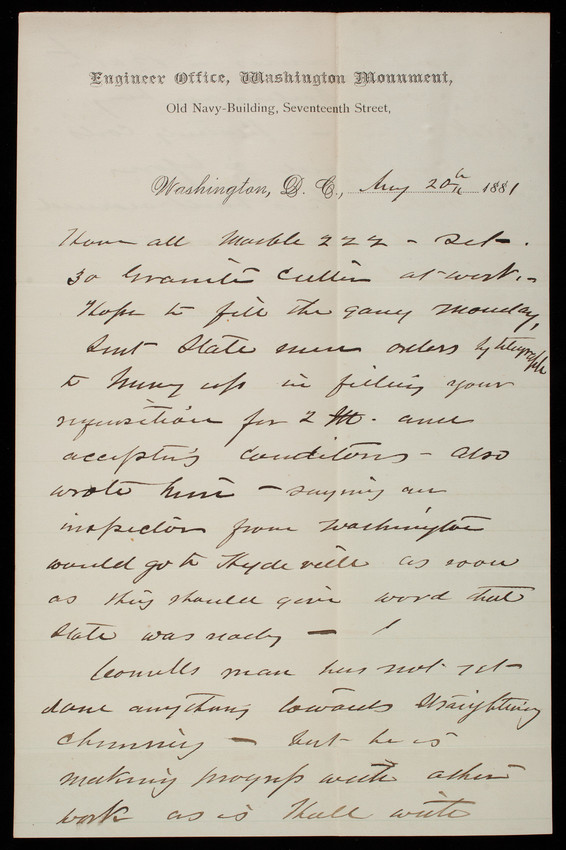 Engineer Office, Washington Monument,
Old Navy-Building, Seventeenth Street,
Washington, D. C., Aug 20th 1881
Have all Marble 222 - set -
30 Granite Cutters at work. -
Hope to fill the gang Monday,
Sent Slate men orders by telegraph
to hurry up in filling your
requisition for 2 M. and
accepting conditions - also
wrote him - saying an
inspector from Washington
would go to Hydeville as soon
as they should give word that
slate was ready -
man has not yet
done anything towards straightening
chimney - but he is
making progress with other
work as is Hall with